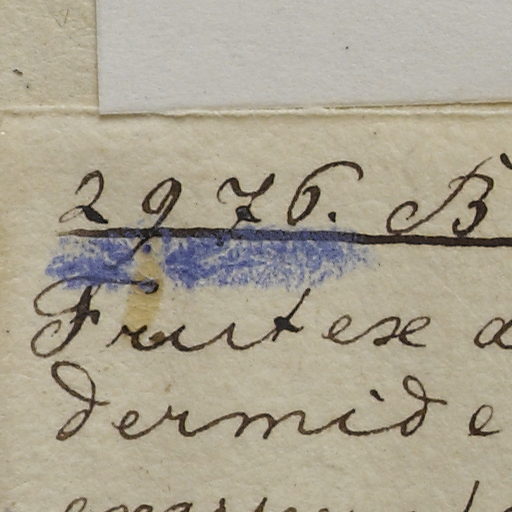 2976. B
Frutex a
dermide